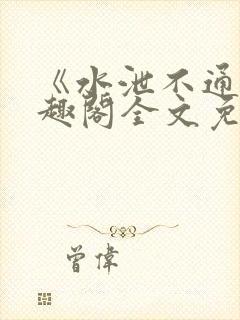 《水泄不通
趣阁全文免
曾偉